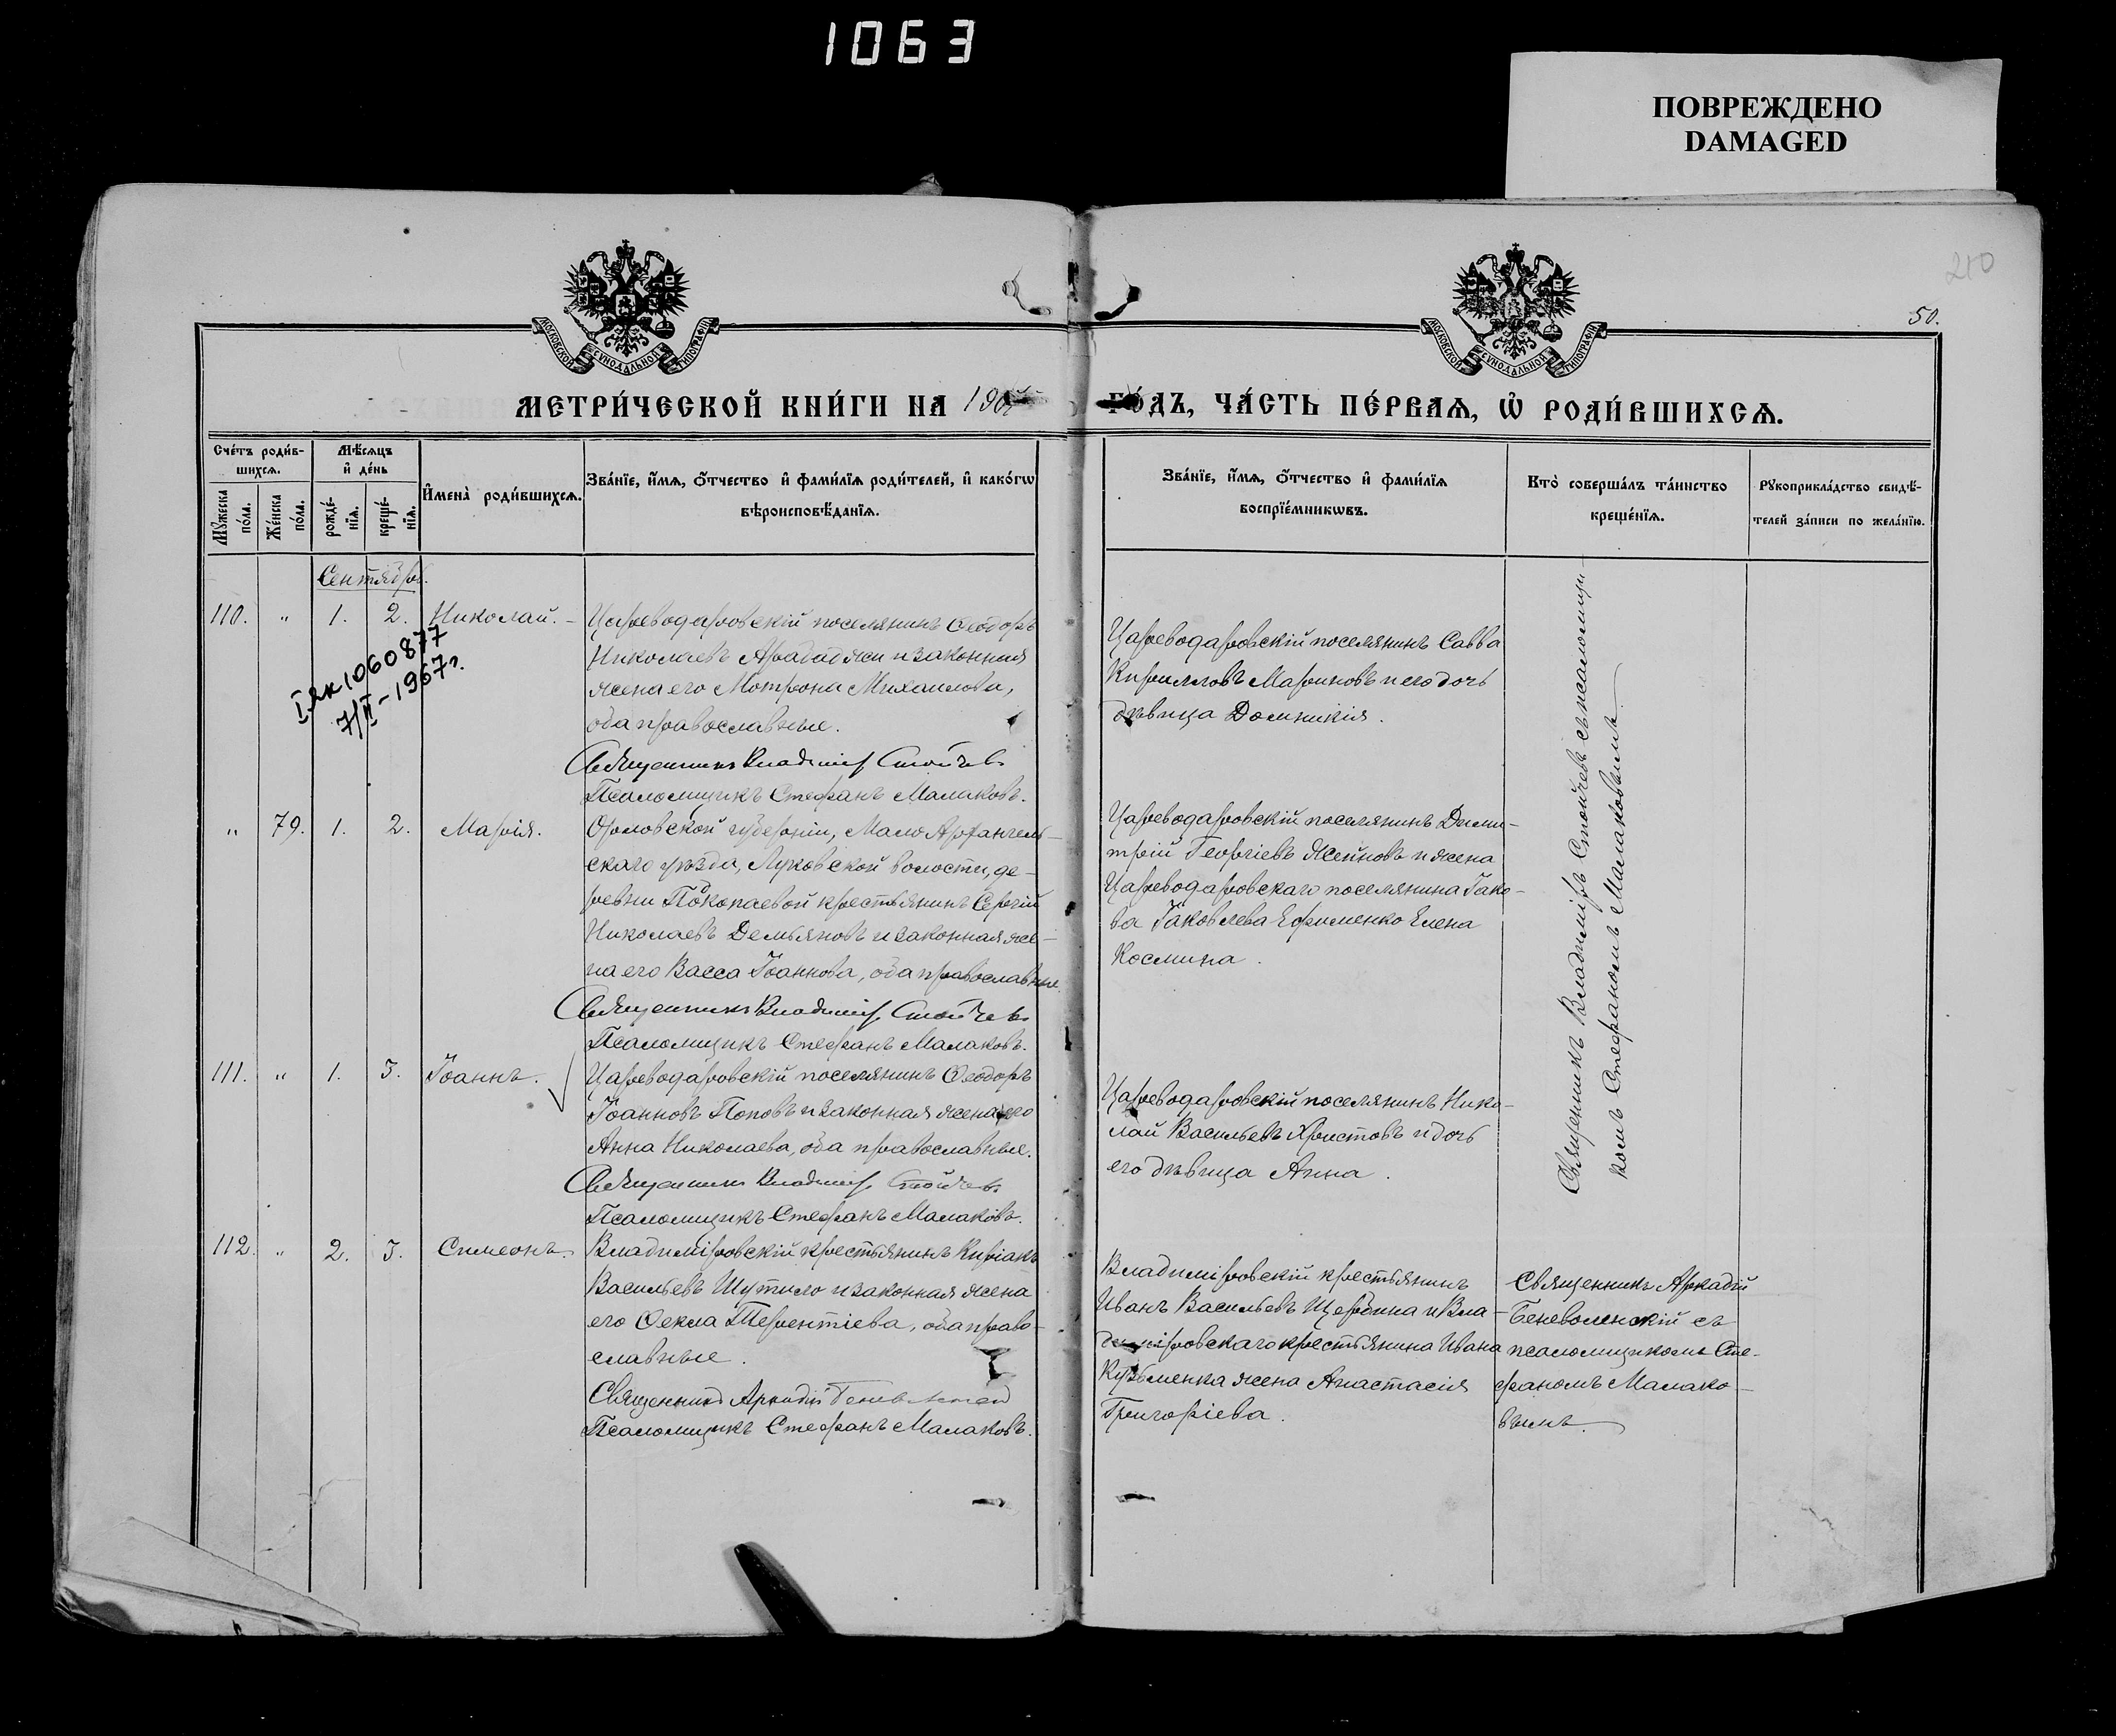 1063
ПОВРЕЖДЕНО
DAMAGED
210
50.
МОСКОВСКОЙ СѴНОДАЛЬНОЙ ТИПОГРАФІИ
МОСКОВСКОЙ СѴНОДАЛЬНОЙ ТИПОГРАФІИ
МЕТРИ́ЧЕСКОЙ КНИ́ГИ НА 190
ГО́ДЪ, ЧА́СТЬ ПЕ́РВАѦ, Ѡ҆ РОДИ́ВШИХСѦ.
Сче́тъ роди́в-
шихсѧ.
Мꙋ́жеска
по́ла.
Же́нска
по́ла.
Мѣ́сѧцъ
и҆ де́нь
рожде́-
нїѧ.
креще́-
нїѧ.
И҆мена̀ роди́вшихсѧ.
Зва́нїе, и҆́мѧ, ѻ҆́тчество и҆ фами́лїѧ роди́телей, и҆ како́гѡ
вѣроисповѣ́данїѧ.
Зва́нїе, и҆́мѧ, ѻ҆́тчество и҆ фами́лїѧ
воспрїе́мникѡвъ.
Кто̀ соверша́лъ та́инство
креще́нїѧ.
Рꙋкоприкла́дство свидѣ́-
телей за́писи по жела́нїю.
Сентябрь.
110. " 1. 2. Николай.
Цареводаровскій поселянинъ Ѳеодоръ
Николаевъ Арабаджи и законная
жена его Мотрона Михаилова,
оба православные.
Священникъ Владиміръ Стойчевъ
Псаломщикъ Стефанъ Малаковъ.
Цареводаровскій поселянинъ Савва
Кирилловъ Мариновъ и его дочь
дѣвица Домникія.
I ЯК 1060877
7/II-1967г.
" 79. 1. 2. Марія.
Орловской губерніи, Мало Архангель-
скаго уѣзда, Луковской волости, де-
ревни Покопаевой крестьянинъ Сергій
Николаевъ Демьяновъ и законная же-
на его Васса Іоаннова, оба православные.
Священникъ Владиміръ Стойчевъ
Псаломщикъ Стефанъ Малаковъ.
Цареводаровскій поселянинъ Дими-
трій Георгіевъ Жейновъ и жена
Цареводаровскаго поселянина Іако-
ва Іаковлева Ефименко Елена
Космина.
111. " 1. 3. Іоаннъ.
Цареводаровскій поселянинъ Ѳеодоръ
Іоанновъ Поповъ и законная жена его
Анна Николаева, оба православные.
Священникъ Владиміръ Стойчевъ
Псаломщикъ Стефанъ Малаковъ.
Цареводаровскій поселянинъ Нико-
лай Васильевъ Христовъ и дочь
его дѣвица Анна.
Священникъ Владиміръ Стойчевъ съ псаломщи-
комъ Стефаномъ Малаковымъ.
112. " 2. 3. Симеонъ.
Владиміровскій крестьянинъ Киріакъ
Васильевъ Шутило и законная жена
его Ѳекла Терентіева, оба право-
славные.
Священникъ Аркадій
Псаломщикъ Стефанъ Малаковъ.
Владиміровскій крестьянинъ
Иванъ Васильевъ Щербина и Вла-
диміровскаго крестьянина Ивана
Кузьменка жена Анастасія
Григоріева.
Священникъ Аркадій
Беневоленскій съ
псаломщикомъ Сте-
фаномъ Малако-
вымъ.